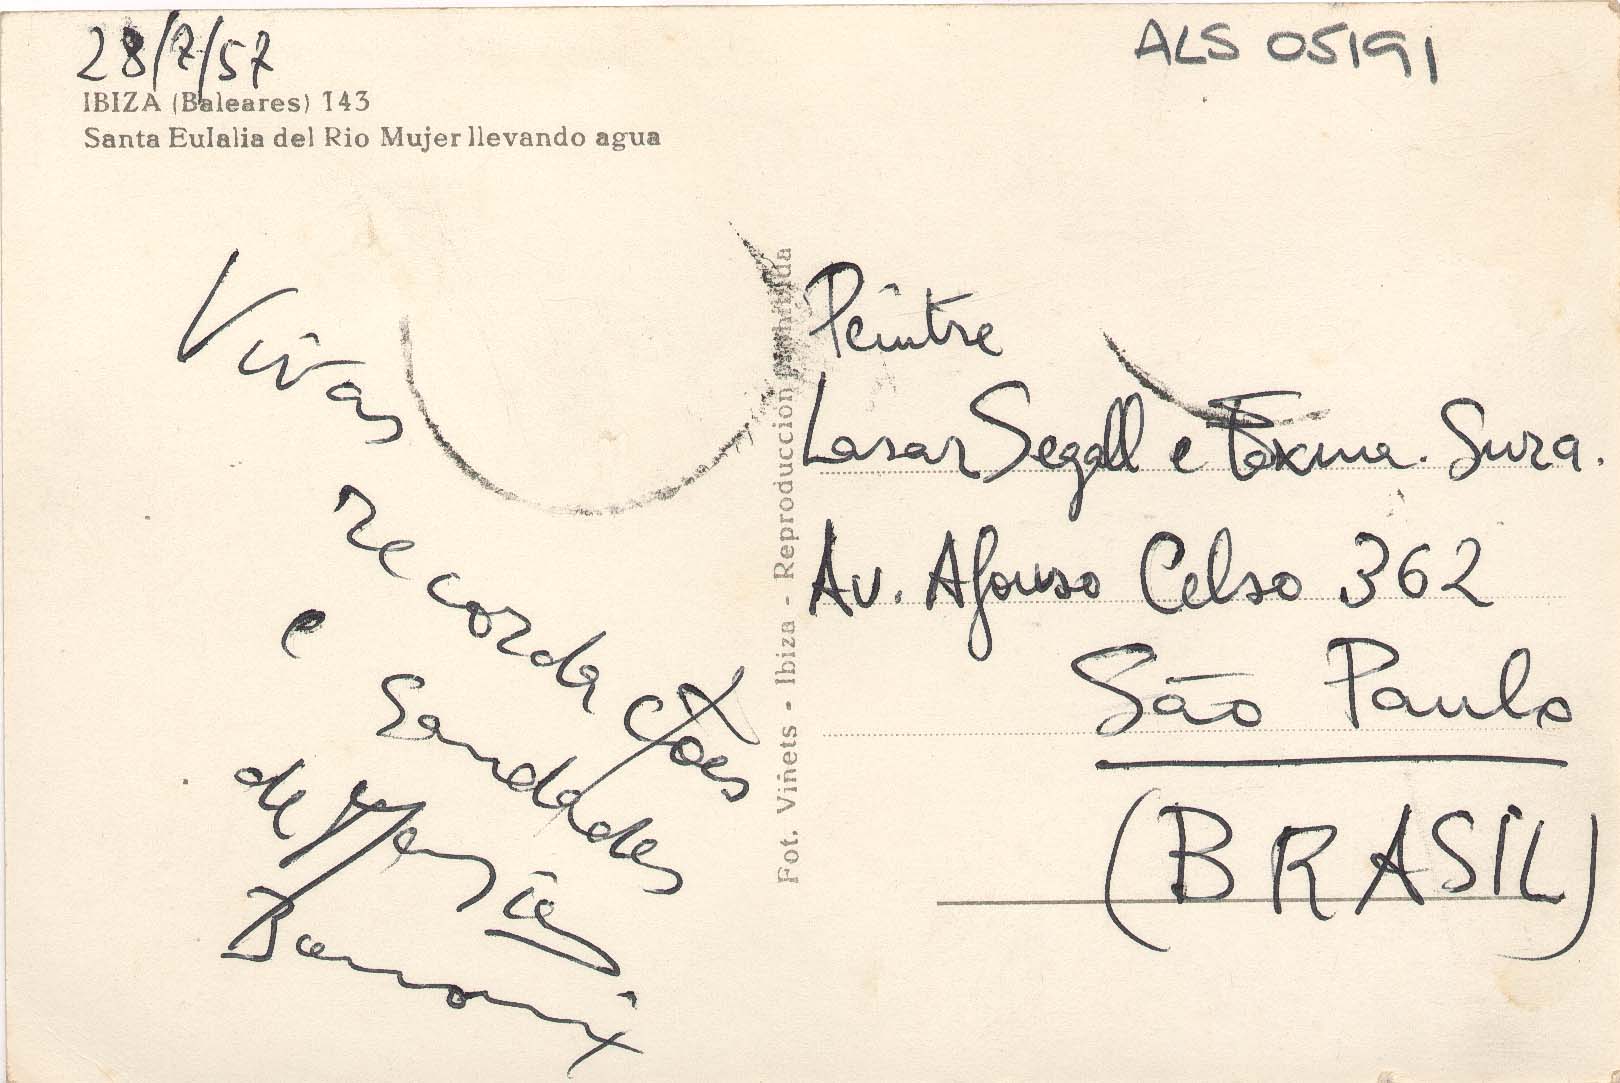 28/7/57
ALS 05191
IBIZA (Baleares) 143
Santa Eulalia del Rio Mujer llevando agua
Vivas
recordações
e Saudades
de
Fot. Viñets - Ibiza - Reproduccion prohibida
Peintre
Lasar Segall e Exma. Snra.
Av. Afonso Celso 362
São Paulo
(BRASIL)